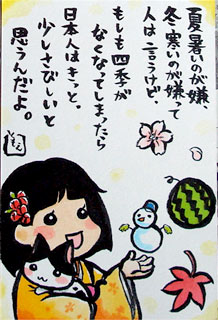 夏暑いのが嫌、
冬寒いのが嫌って
人は言うけど、
もしも四季が
なくなってしまったら
日本人はきっと、
少しさびしいと
思うんだよ。